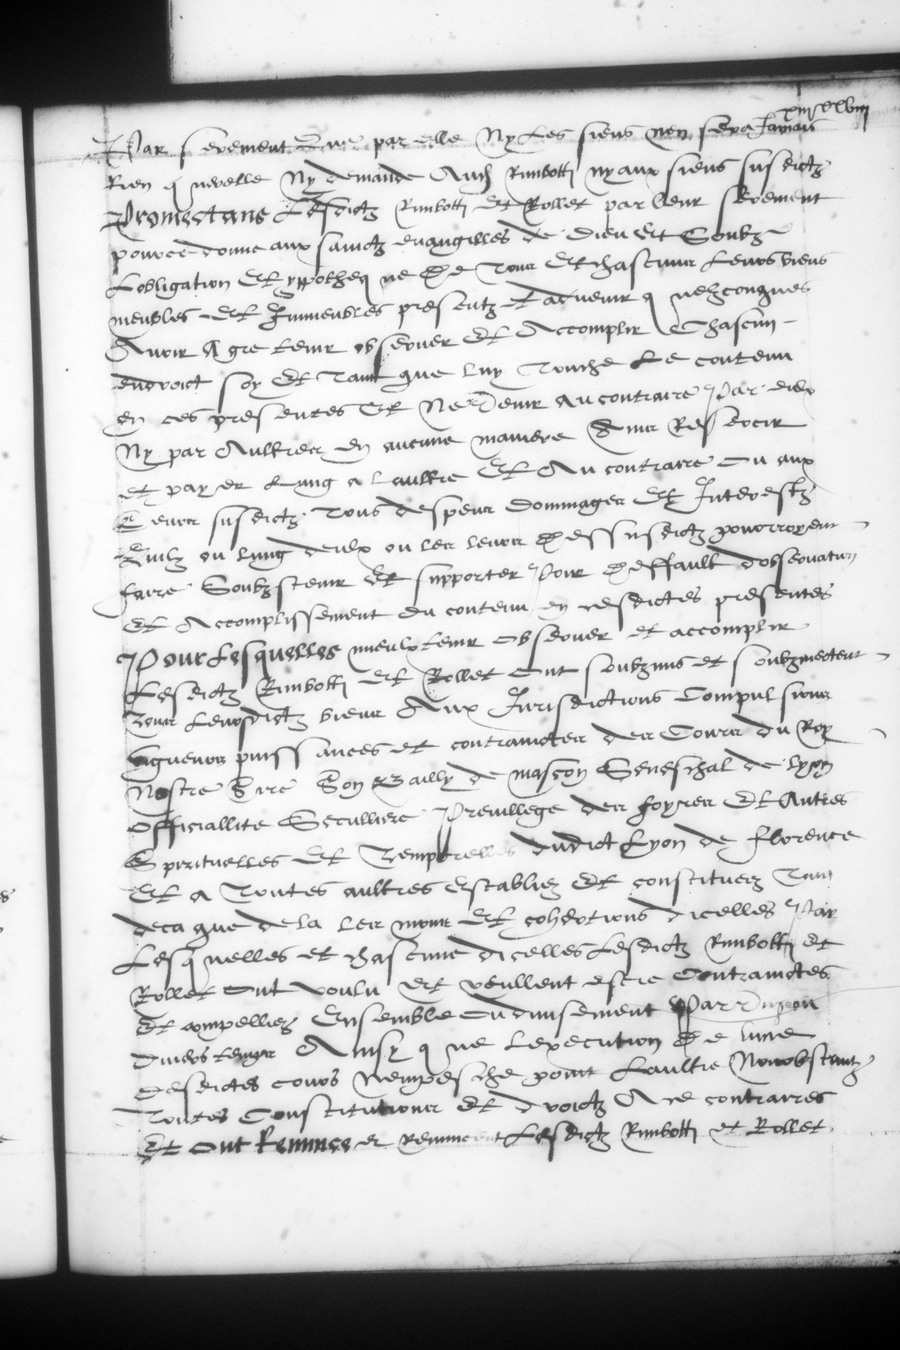 Par serement Que par elle Ny les siens nen sera Jamais
Rien q uerelle Ny demande Ausd Rimbotti ny aux siens susdictz
Promectans Lesdictz Rimbotti Et Rollet par leur Serement
pource donne aux sainctz euangilles de Dieu Et Soubz
Lobligation Et ypotheq ue De Tous Et chascuns Leurs biens
meubles Et Immeubles presentz Et aduenir q uelzconques
Auoir A gre tenir obseruer Et Accomplir Chascun
endroict soy Et Tant que luy Touche Le contenu
en ces presentes Et Ne Venir Au contraire Par eulx
Ny par Aultres en aucune maniere Ains
et payer Lung a laultre Et Au contraire Ou aux
Leurs susdictz Tous despens dommages Et Interestz
Quilz ou lung deulx ou les leurs Dessusdictz pourroyent
faire Soubzstenir Et supporter Pour Deffault dobseruation
Et Accomplissement du contenu en cesdictes presentes
Pour Lesquelles mieulx tenir Obseruer et accomplir
Lesdictz Rimbotti Et Rollet Ont soubzmis et soubzmectent
Tous Leursdictz biens Aux Jurisdictions Compulsions
vigueurs puissances et contrainctes des Cours du Roy
Nostre Sire Son Bailly de mascon Seneschal de lyon
Officiallite Seculliere Preuillege des foyres Et Autres
Spirituelles Et Temporelles dudict Lyon de florence
Et a Toutes aultres Establies Et constituees Tant
deca que dela les mons Et cohertions dicelles Par
Lesq uelles et chascune dicelles Lesdictz Rimbotti Et
Rollet Ont voulu Et veullent estre Contrainctes
Et compellies Ensemble Ou diuisement Par
diuers temps Ainsy q ue Lexecution De lune
desdictes cours Nempesche point Laultre Nonobstantz
Toutes Constitutions Et droictz A ce contraires
Et Ont Renunce et renuncent Lesdictz Rimbotti et Rollet